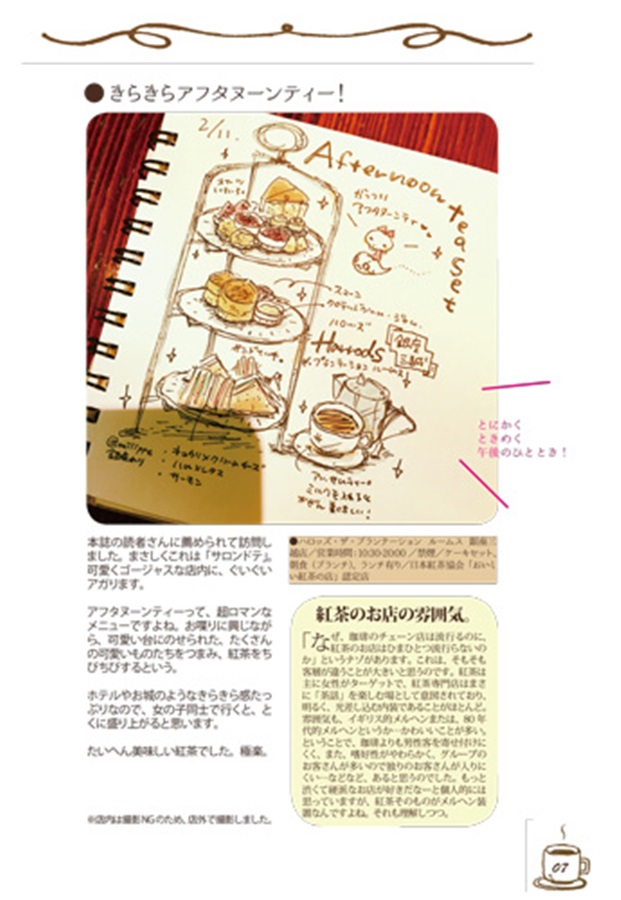 ●きらきらアフタヌーンティー！
2/11.
Afternoon tea set
がっつり
アフタヌーンティー♥
スコーン
ハロッズ
Harrods
銀座
三越
サンドイッチ
・サーモン
ミルクを入れると
美味しい！
とにかく
ときめく
午後のひととき！
本誌の読者さんに薦められて訪問し
ました。まさしくこれは「サロンドテ」。
可愛くゴージャスな店内に、ぐいぐい
アガります。
アフタヌーンティーって、超ロマンな
メニューですよね。お喋りに興じなが
ら、可愛い台にのせられた、たくさん
の可愛いものたちをつまみ、紅茶をち
びちびするという。
ホテルやお城のようなきらきら感たっ
ぷりなので、女の子同士で行くと、と
くに盛り上がると思います。
たいへん美味しい紅茶でした。極楽。
※店内は撮影NGのため、店外で撮影しました。
●ハロッズ・ザ・プランテーション ルームス 銀座三
越店／営業時間：10:30-20:00 ／禁煙／ケーキセット、
朝食（ブランチ）、ランチ有り／日本紅茶協会「おいし
い紅茶の店」認定店
紅茶のお店の雰囲気。
「なぜ、珈琲のチェーン店は流行るのに、
紅茶のお店はひまひとつ流行らないの
か」というナゾがあります。これは、そもそも
客層が違うことが大きいと思うのです。紅茶は
主に女性がターゲットで、紅茶専門店はまさ
に「茶話」を楽しむ場として意図されており、
明るく、光差し込む内装であることがほとんど。
雰囲気も、イギリス的メルヘンまたは、80 年
代的メルヘンというか…かわいいことが多い。
ということで、珈琲よりも男性客を寄せ付けに
くく、また、嗜好性がやわらかく、グループの
お客さんが多いので独りのお客さんが入りに
くい…などなど、あると思うのでした。もっと
渋くて硬派なお店が好きだなーと個人的には
思っていますが、紅茶そのものがメルヘン装
置なんですよね。それも理解しつつ。
07